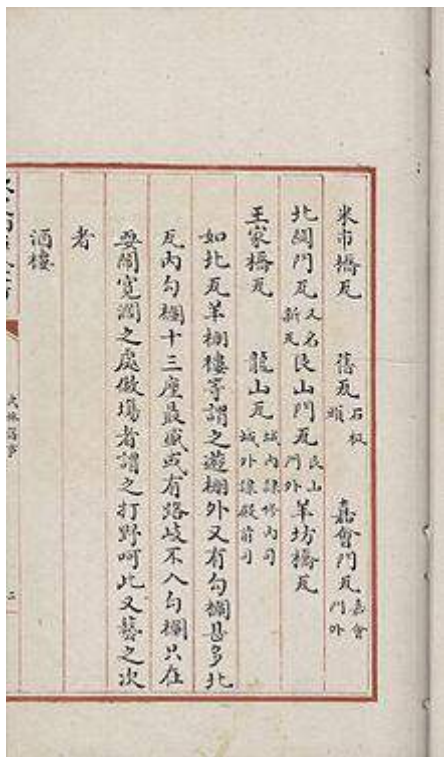 米市橋瓦　舊瓦石板頭　嘉會門瓦嘉會門外
北關門瓦又名新瓦艮山門瓦艮山門外羊坊橋瓦
王家橋瓦　龍山瓦城内隸修内司城外隸殿前司
如北瓦羊棚樓等謂之遊棚外又有勾欄甚多北
瓦内勾欄十三座最盛或有路歧不入勾欄只在
耍鬧寛濶之處做塲者謂之打野呵此又藝之次
者
酒樓
武林舊事
二